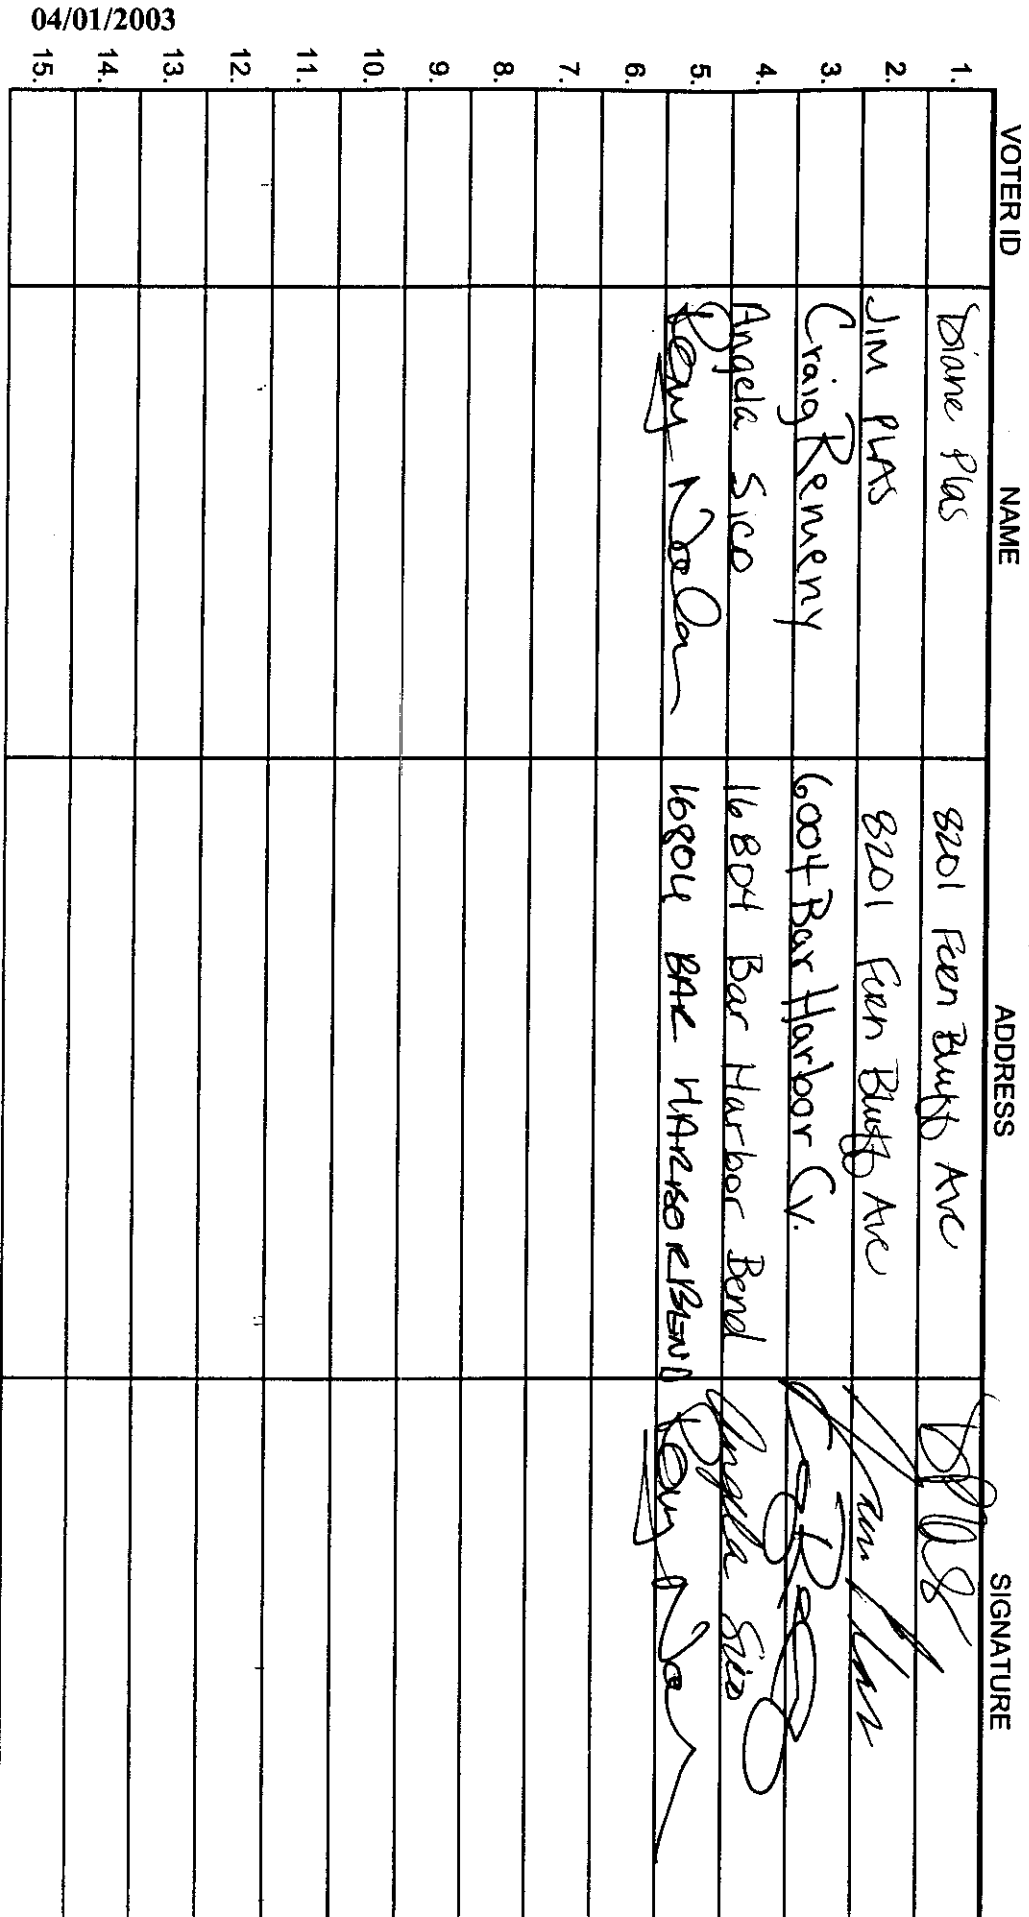 04/01/2003
VOTER ID NAME ADDRESS SIGNATURE
1. Diane Plas 8201 Fern Bluff Ave
2. JIM PLAS 8201 Fern Bluff Ave
3. Craig Remeny 6004 Bar Harbor Cv.
4. Angela Sico 16804 Bar Harbor Bend Angela Sico
5. 16804 BAR HARBOR BEND
6.
7.
8.
9.
10.
11.
12.
13.
14.
15.